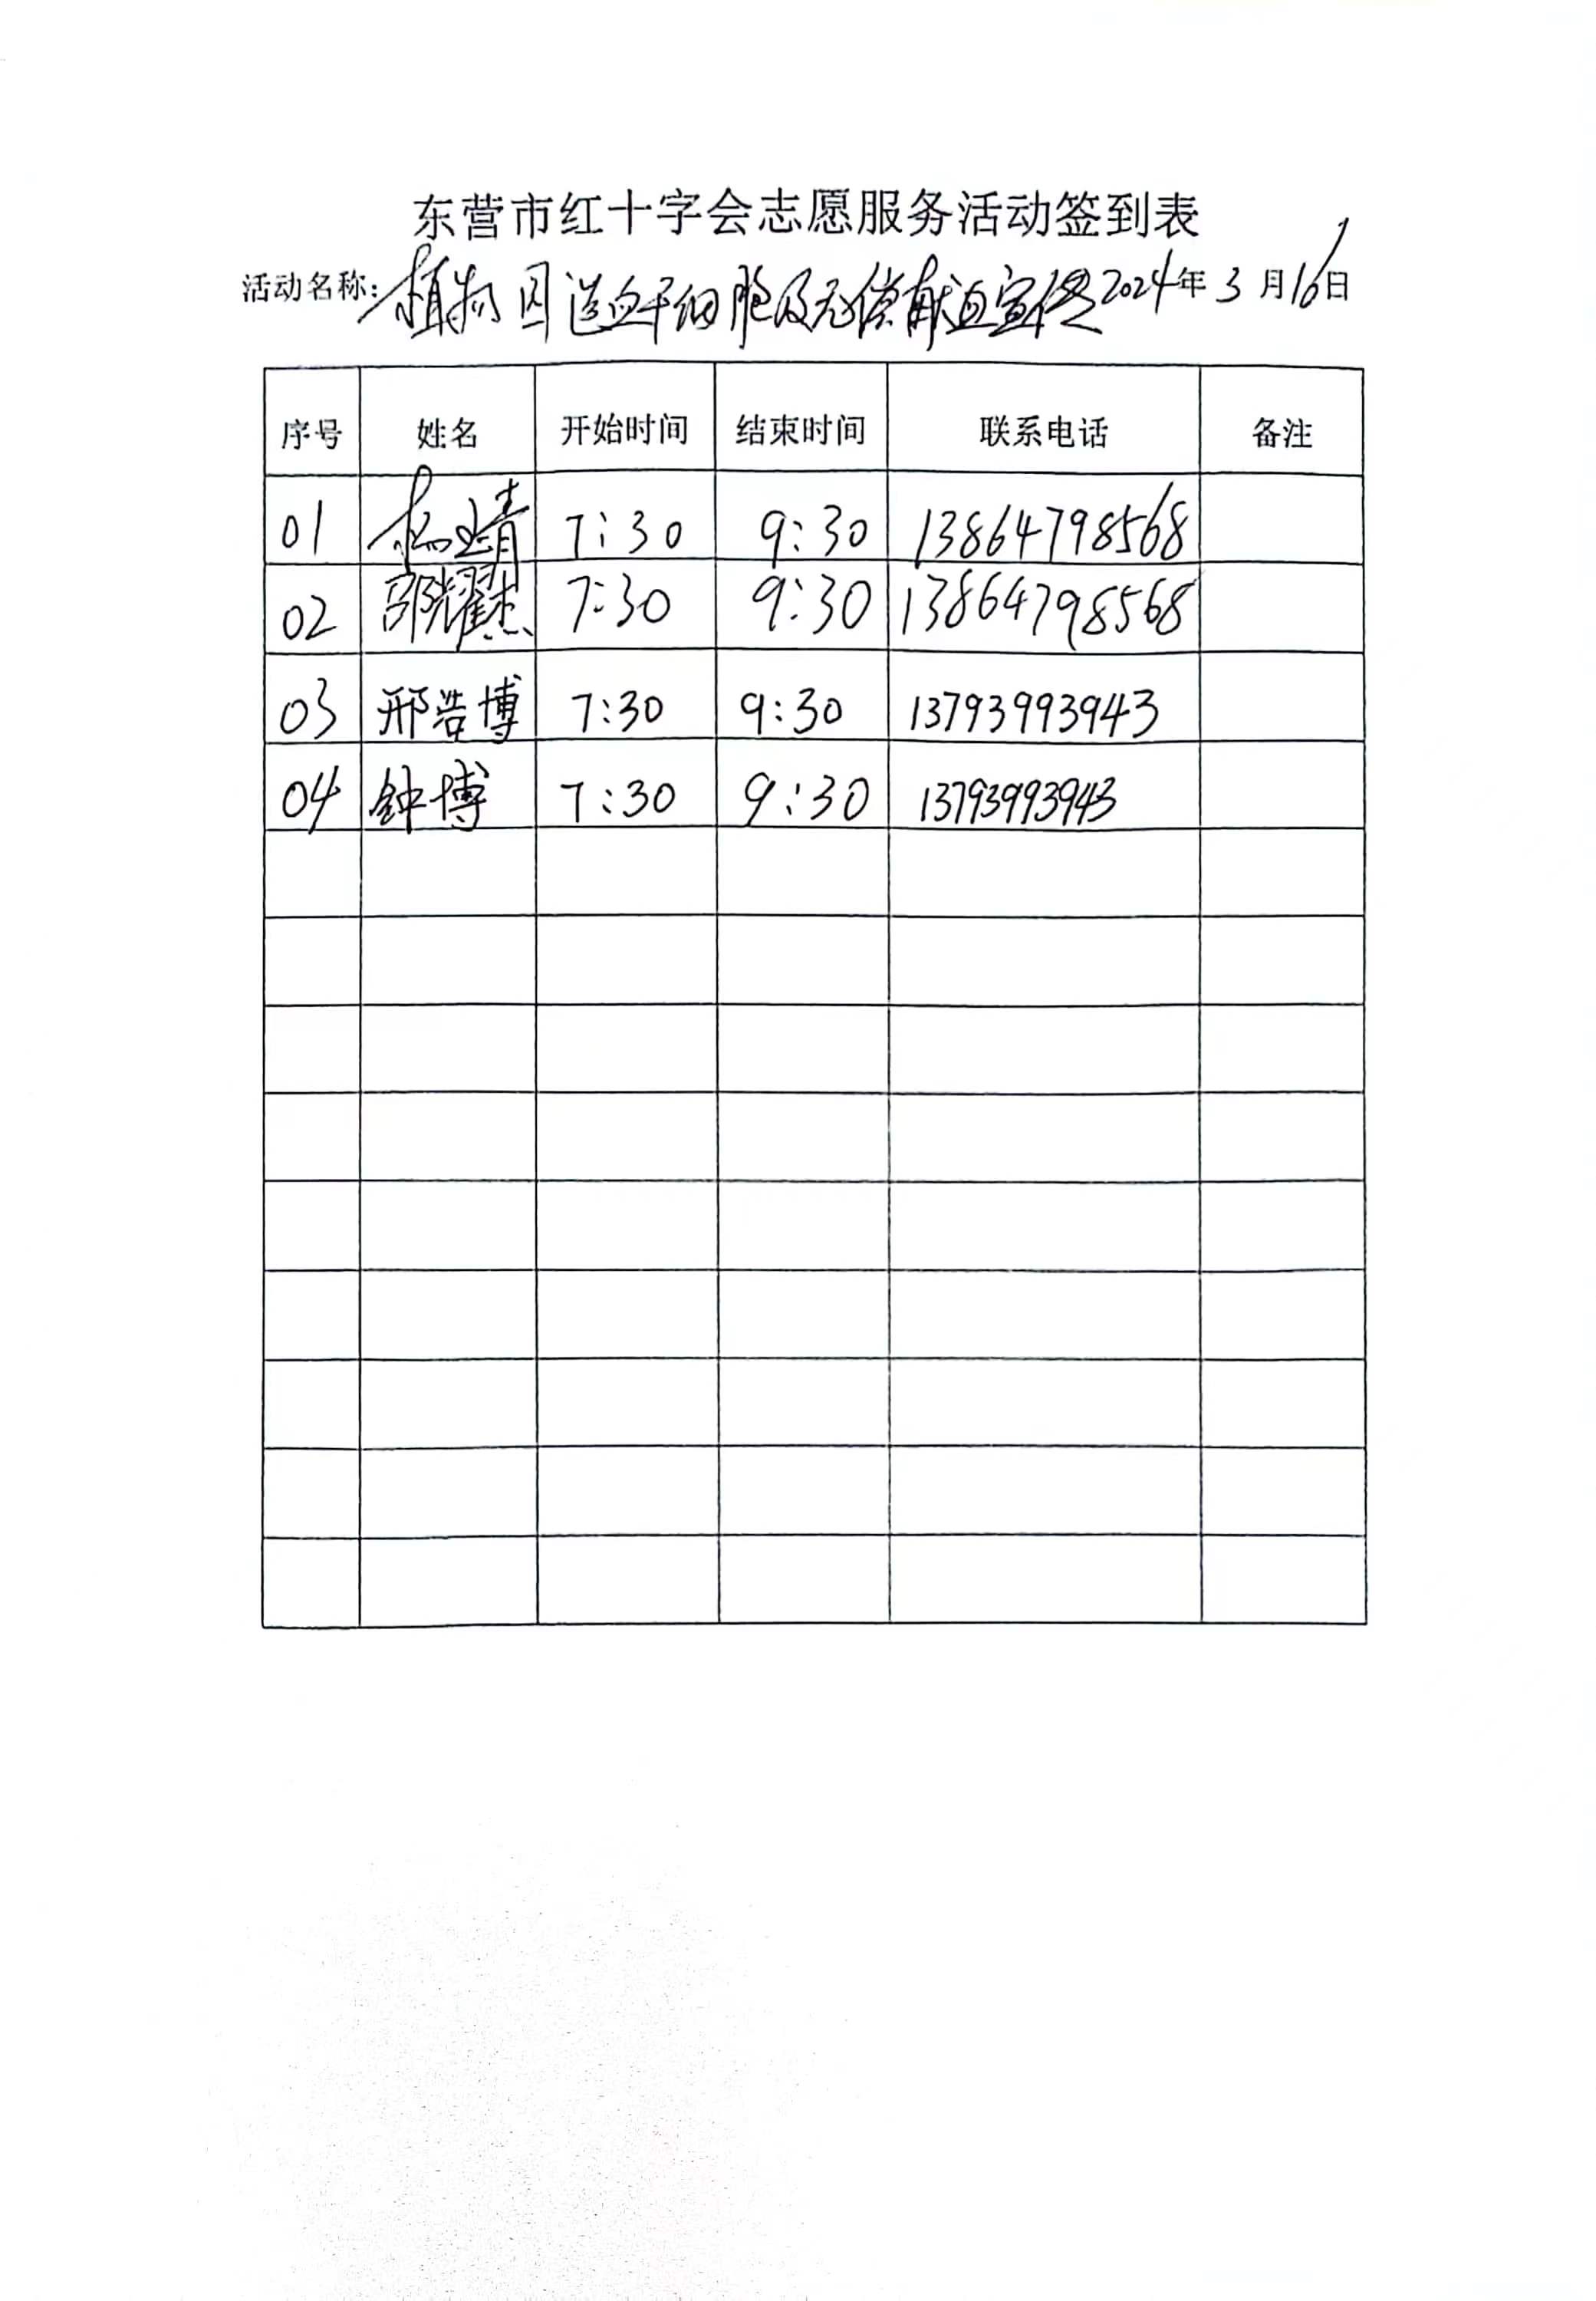 东营市红十字会志愿服务活动签到表
活动名称：植物园造血干细胞及无偿献血宣传 2024年 3 月 16日
序号 姓名 开始时间 结束时间 联系电话 备注
01 杨靖 7:30 9:30 13864798568
02 邵耀杰 7:30 9:30 13864798568
03 邢浩博 7:30 9:30 13793993943
04 钟博 7:30 9:30 13793993943